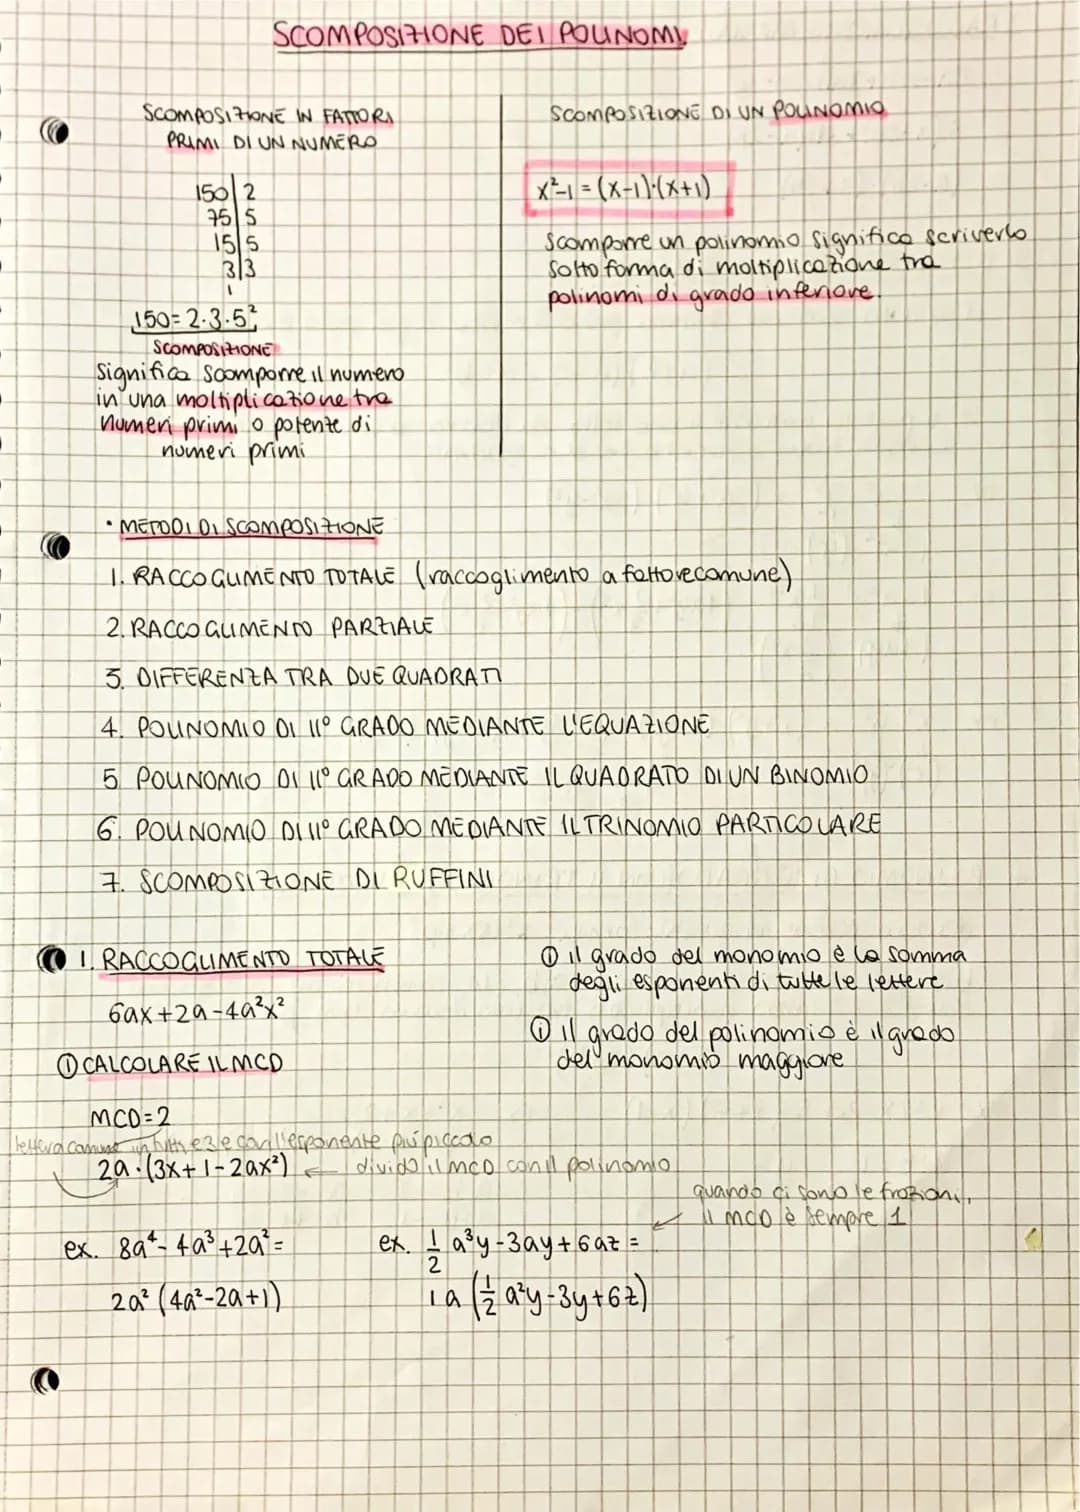 SCOMPOSIZIONE DEI POLINOMI
SCOMPOSIZIONE IN FATTORI
PRIMI DI UN NUMERO
150 | 2
75 | 5
15 | 5
3 | 3
1
150 = 2·3·5²
SCOMPOSIZIONE
Significa scomporre il numero
in una moltiplicazione tra
numeri primi o potenze di
numeri primi
SCOMPOSIZIONE DI UN POLINOMIO
x²-1 = (x-1)·(x+1)
Scomporre un polinomio significa scriverlo
sotto forma di moltiplicazione tra
polinomi di grado inferiore.
• METODI DI SCOMPOSIZIONE
1. RACCOGLIMENTO TOTALE (raccoglimento a fattore comune)
2. RACCOGLIMENTO PARZIALE
3. DIFFERENZA TRA DUE QUADRATI
4. POLINOMIO DI II° GRADO MEDIANTE L'EQUAZIONE
5 POLINOMIO DI II° GRADO MEDIANTE IL QUADRATO DI UN BINOMIO
6. POLINOMIO DI II° GRADO MEDIANTE IL TRINOMIO PARTICOLARE
7. SCOMPOSIZIONE DI RUFFINI
1. RACCOGLIMENTO TOTALE
6ax+2a-4a²x²
① CALCOLARE IL MCD
MCD=2
lettera comune in tutti e 3 e con l'esponente più piccolo
2a·(3x+1-2ax²) ← divido il mcd con il polinomio
① il grado del monomio è la somma
degli esponenti di tutte le lettere
① il grado del polinomio è il grado
del monomio maggiore
quando ci sono le frazioni,
il mcd è sempre 1
ex. 8a⁴-4a³+2a²=
2a² (4a²-2a+1)
ex. 1/2 a³y-3ay+6az =
1a (1/2 a²y-3y+6z)